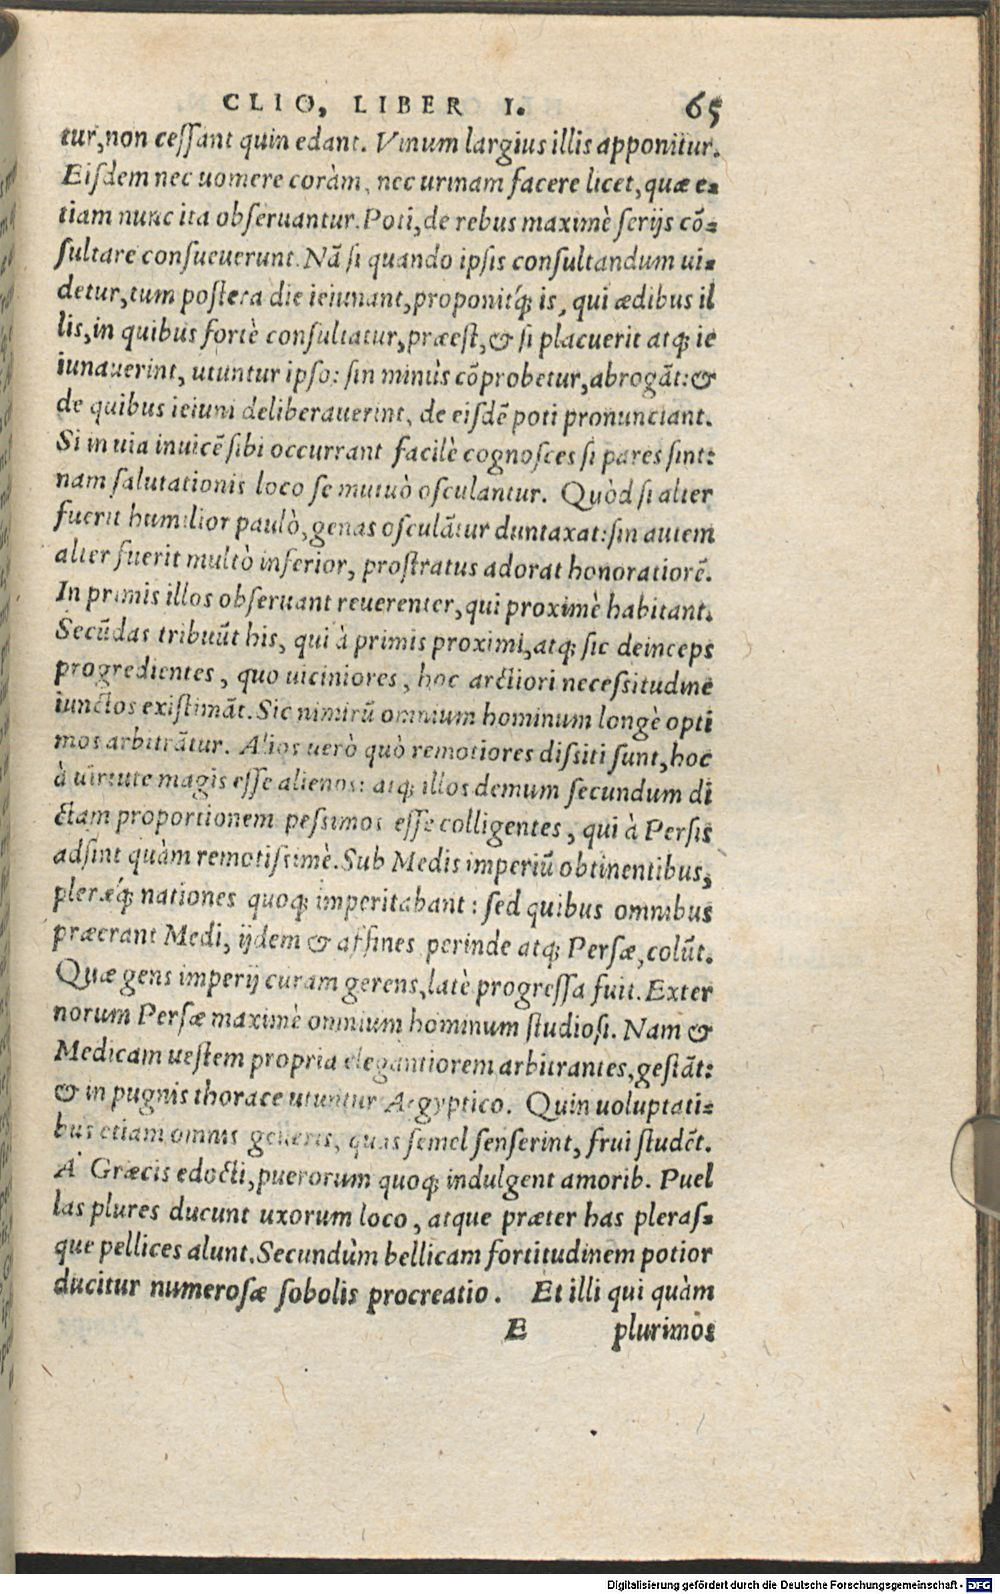 CLIO, LIBER I. 65
tur, non cessant quin edant. Vinum largius illis apponitur.
Eisdem nec uomere coràm, nec urinam facere licet, quæ e-
tiam nunc ita obseruantur. Poti, de rebus maximè serijs cõ-
sultare consueuerunt. Nã si quando ipsis consultandum ui-
detur, tum postera die ieiunant, proponitq́; is, qui ædibus il
lis, in quibus fortè consultatur, præest, & si placuerit atq; ie
iunauerint, utuntur ipso: sin minùs cõprobetur, abrogãt: &
de quibus ieiuni deliberauerint, de eisdẽ poti pronunciant.
Si in uia inuicẽ sibi occurrant facilè cognosces si pares sint:
nam salutationis loco se mutuò osculantur. Quòd si alter
fuerit humilior paulò, genas osculãtur duntaxat: sin autem
alter fuerit multò inferior, prostratus adorat honoratiorẽ.
In primis illos obseruant reuerenter, qui proximè habitant.
Secũdas tribuũt his, qui à primis proximi, atq; sic deinceps
progredientes, quo uiciniores, hoc arctiori necessitudine
iunctos existimãt. Sic nimirũ omnium hominum longè opti
mos arbitrãtur. Alios uerò quò remotiores dissiti sunt, hoc
à uirtute magis esse alienos: atq; illos demum secundum di
ctam proportionem pessimos esse colligentes, qui à Persis
adsint quàm remotissimè. Sub Medis imperiũ obtinentibus,
pleræq́; nationes quoq; imperitabant: sed quibus omnibus
præerant Medi, ijdem & affines perinde atq; Persæ, colũt.
Quæ gens imperij curam gerens, latè progressa fuit. Exter
norum Persæ maximè omnium hominum studiosi. Nam &
Medicam uestem propria elegantiorem arbitrantes, gestãt:
& in pugnis thorace utuntur Aegyptico. Quin uoluptati-
bus etiam omnis generis, quas semel senserint, frui studẽt.
A' Græcis edocti, puerorum quoq; indulgent amorib. Puel
las plures ducunt uxorum loco, atque præter has pleras-
que pellices alunt. Secundùm bellicam fortitudinem potior
ducitur numerosæ sobolis procreatio. Et illi qui quàm
E plurimos
Digitalisierung gefördert durch die Deutsche Forschungsgemeinschaft - DFG